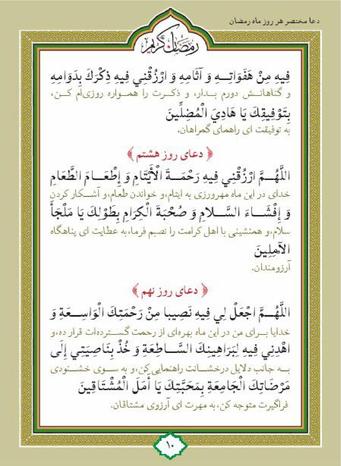 دعا مختصر هر روز ماه رمضان
رمضان کریم
فِيهِ مِنْ هَفَوَاتِهِ وَ آثَامِهِ وَ ارْزُقْنِي فِيهِ ذِكْرَكَ بِدَوَامِهِ
و گناهانش دورم بدار، و ذکرت را همواره روزی‌ام کن،
بِتَوْفِيقِكَ يَا هَادِيَ الْمُضِلِّينَ
به توفیقت ای راهنمای گمراهان.
﴿ دعای روز هشتم ﴾
اللَّهُمَّ ارْزُقْنِي فِيهِ رَحْمَةَ الْأَيْتَامِ وَ إِطْعَامَ الطَّعَامِ
خدای در این ماه مهرورزی به ایتام، و خواندن طعام، و آشکار کردن
وَ إِفْشَاءَ السَّلَامِ وَ صُحْبَةَ الْكِرَامِ بِطَوْلِكَ يَا مَلْجَأَ
سلام، و همنشینی با اهل کرامت را نصبم فرما، به عطایت ای پناهگاه
الْآمِلِينَ
آرزومندان.
﴿ دعای روز نهم ﴾
اللَّهُمَّ اجْعَلْ لِي فِيهِ نَصِيبا مِنْ رَحْمَتِكَ الْوَاسِعَةِ وَ
خدایا برای من در این ماه بهره‌ای از رحمت گسترده‌ات قرار ده، و
اهْدِنِي فِيهِ لِبَرَاهِينِكَ السَّاطِعَةِ وَ خُذْ بِنَاصِيَتِي إِلَى
به جانب دلایل درخشانت راهنمایی کن، و به سوی خشنودی
مَرْضَاتِكَ الْجَامِعَةِ بِمَحَبَّتِكَ يَا أَمَلَ الْمُشْتَاقِينَ
فراگیرت متوجه کن، به مهرت ای آرزوی مشتاقان.
۱۰